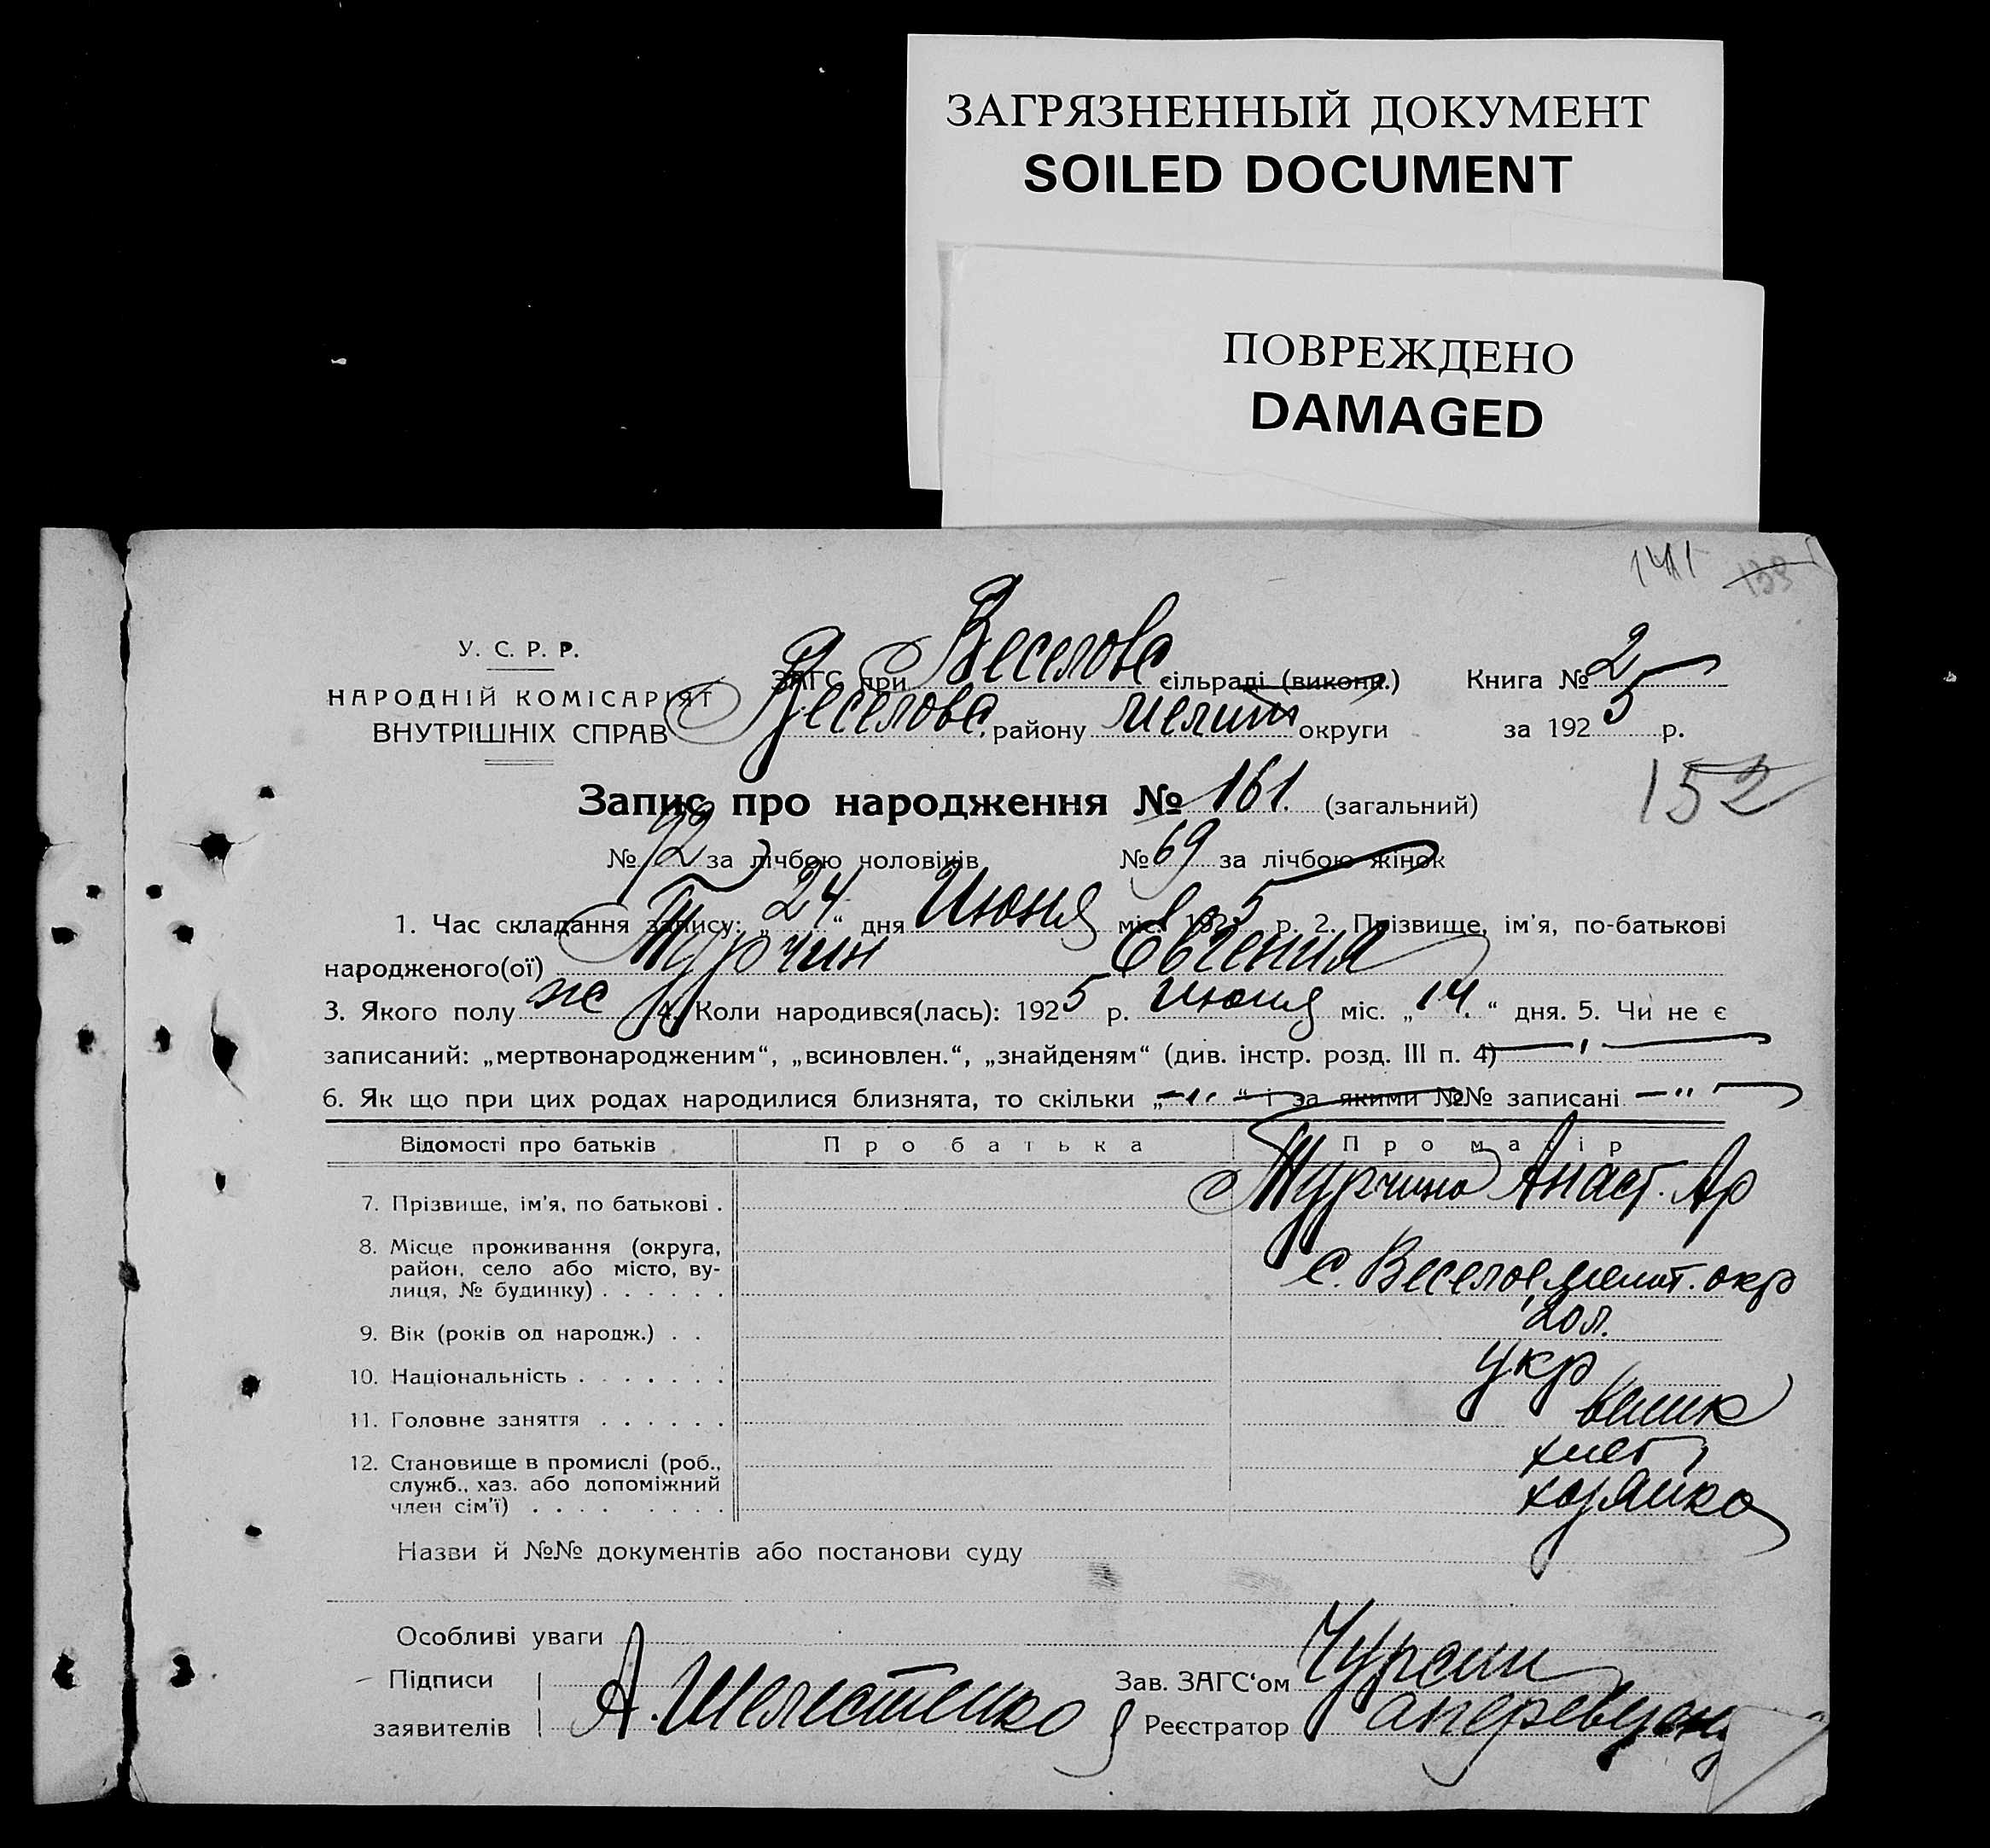 ЗАГРЯЗНЕННЫЙ ДОКУМЕНТ
SOILED DOCUMENT
ПОВРЕЖДЕНО
DAMAGED
141 133
У. С. Р. Р.
НАРОДНІЙ КОМІСАРІЯТ
ВНУТРІШНІХ СПРАВ
ЗАГС при Веселовс. сільраді (виконк.) Книга № 2
Веселовс. району Мелит округи за 1925 р.
152
Запис про народження № 161. (загальний)
№ 92 за лічбою чоловіків № 69 за лічбою жінок
1. Час складання запису: „24“ дня Июня міс. 1925 р. 2. Прізвище, ім'я, по-батькові
народженого(ої) Турчин Евгения
3. Якого полу же 4. Коли народився(лась): 1925 р. Июня міс. „14.“ дня. 5. Чи не є
записаний: „мертвонародженим“, „всиновлен.“, „знайденям“ (див. інстр. розд. III п. 4)
6. Як що при цих родах народилися близнята, то скільки „-"-“ і за якими №№ записані -"-
Відомості про батьків Про батька Про матір
7. Прізвище, ім'я, по батькові . Турчина Анаст. Ар
8. Місце проживання (округа,
район, село або місто, ву-
лиця, № будинку) . . . . . . с. Веселое, Мелит. окр
9. Вік (років од народж.) . . 20 л.
10. Національність . . . . . . . Укр
11. Головне заняття . . . . . .
12. Становище в промислі (роб.,
служб., хаз. або допоміжний
член сім'ї) . . . . . . . . хозяйка
Назви й №№ документів або постанови суду
Особливі уваги
Підписи
заявителів А. Шелестенко
Зав. ЗАГС'ом Чурсин
Реєстратор